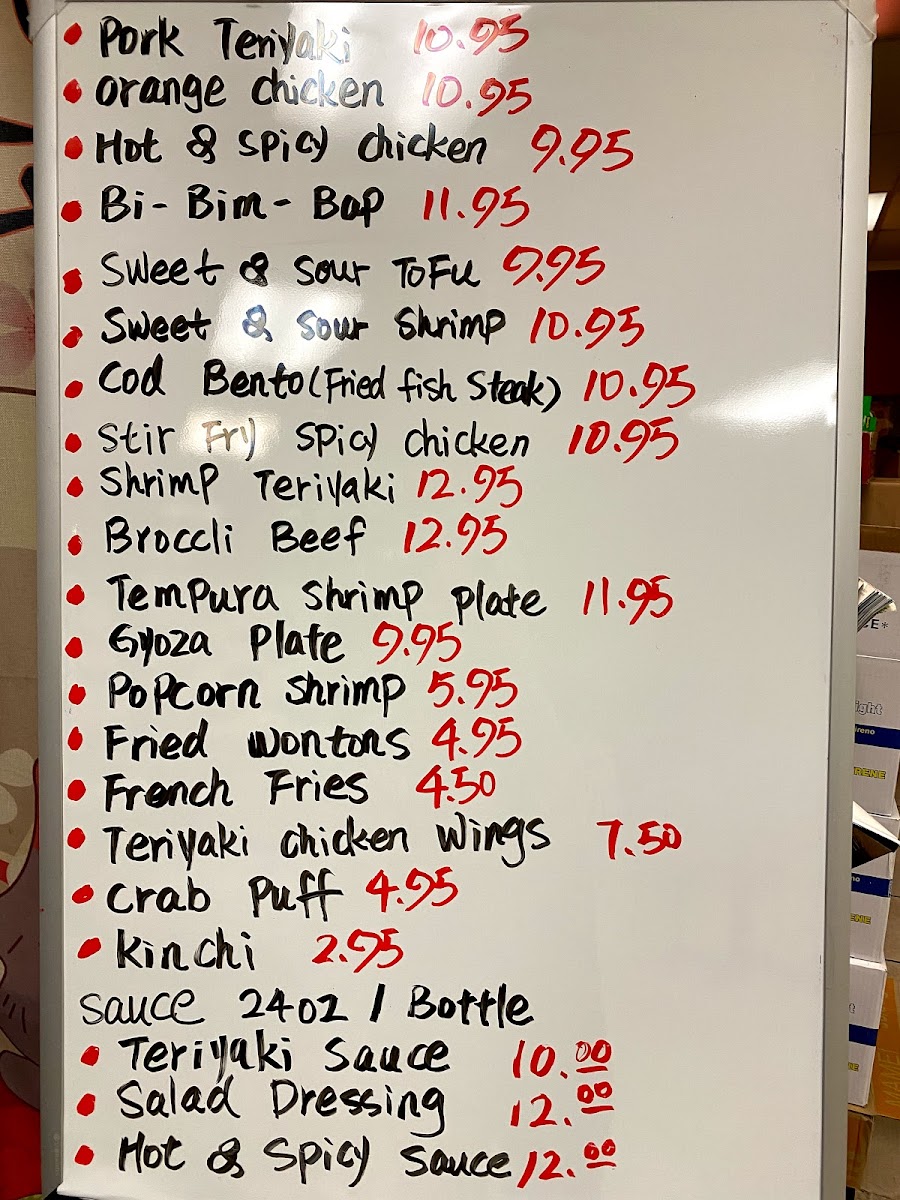 Pork Teriyaki 10.95
orange chicken 10.95
Hot & Spicy chicken 9.95
Bi-Bim-Bap 11.95
Sweet & Sour ToFu 9.95
Sweet & Sour Shrimp 10.95
Cod Bento (Fried fish Steak) 10.95
Stir Fry Spicy chicken 10.95
Shrimp Teriyaki 12.95
Broccli Beef 12.95
Tempura Shrimp plate 11.95
Gyoza Plate 9.95
PoPcorn Shrimp 5.95
Fried wontons 4.95
French Fries 4.50
Teriyaki chicken Wings 7.50
Crab Puff 4.95
Kinchi 2.95
Sauce 24oz / Bottle
Teriyaki Sauce 10.00
Salad Dressing 12.00
Hot & Spicy Sauce 12.00